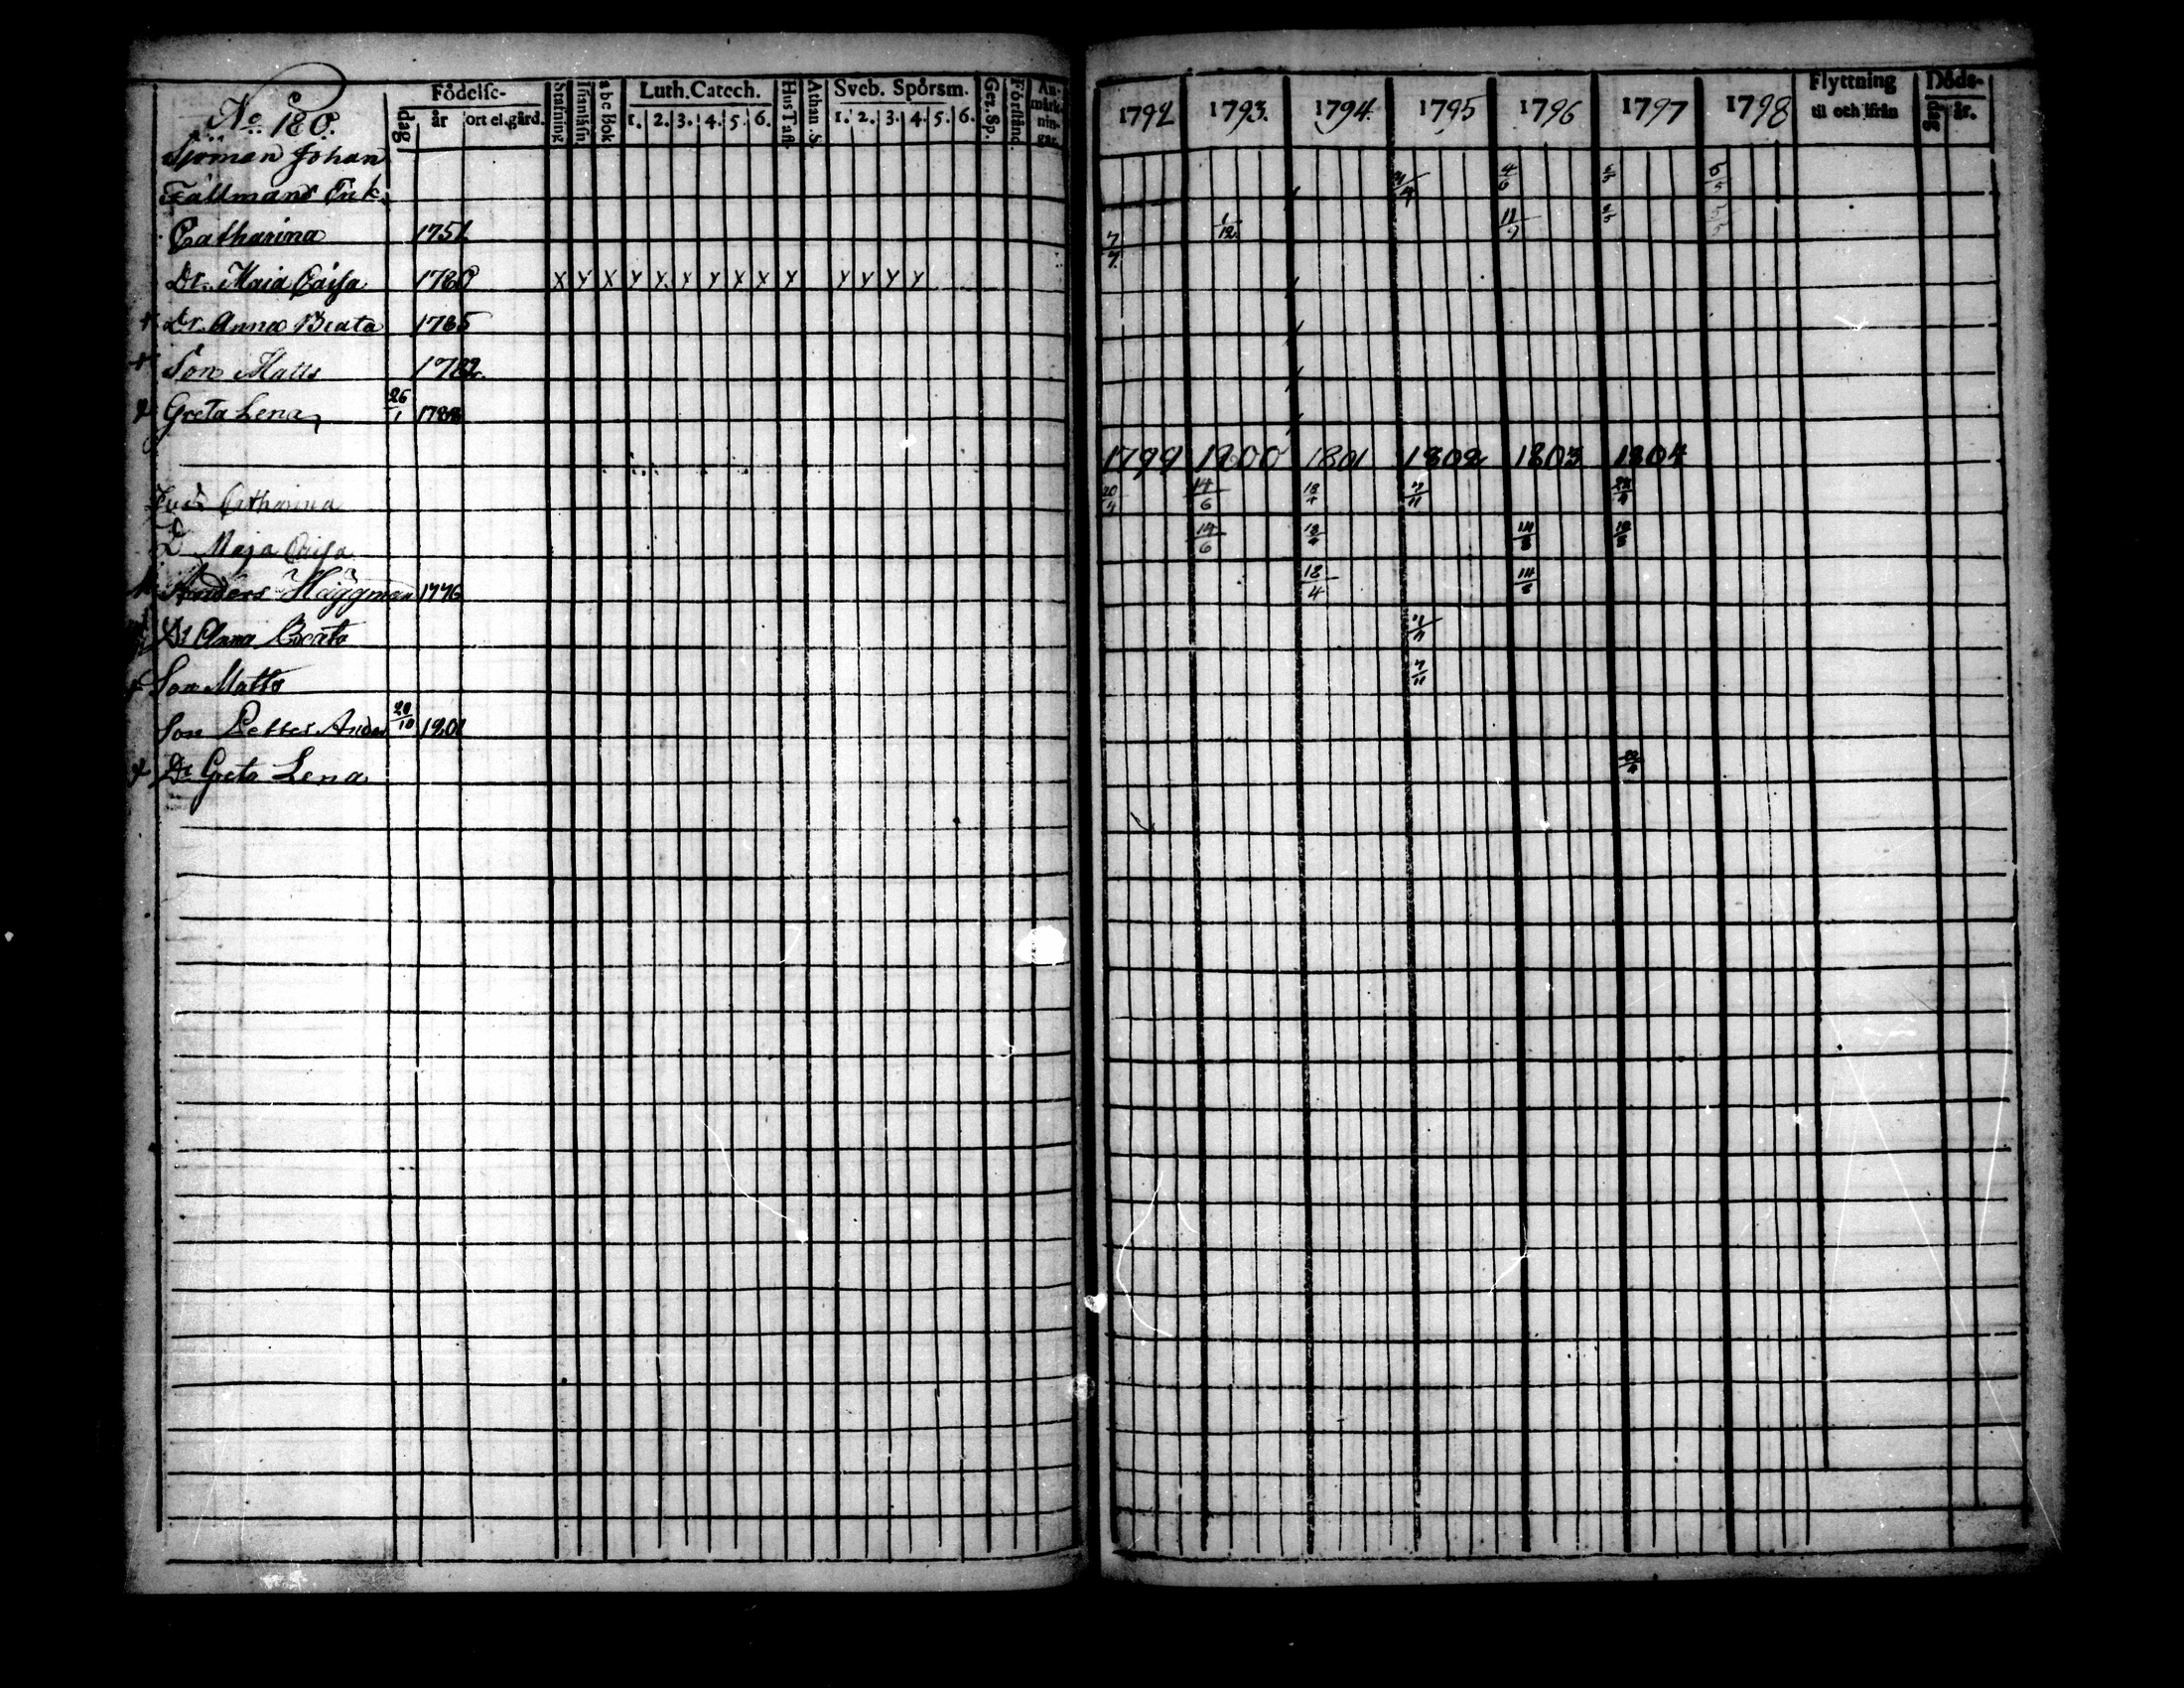 No. 180.
Födelse-
dag år ort el. gård.
Stafning Innanläsn. abc Bok
Luth. Catech.
1. 2. 3. 4. 5. 6.
Hus Tafl. Athan. S.
Sveb. Spörsm.
1. 2. 3. 4. 5. 6.
Gez. Sp. Förstånd. Anmärkningar.
1792 1793. 1794. 1795 1796 1797 1798
Flyttning
til och ifrån
Döds-
dag år.
Sjöman Johan
Fällmans Enk. 4/6 5/5
Catharina 1751 7/7 1/12 11/9 5/5
Dr. Maja Caisa 1780 x x x x x x x x x x x x x x
+ Dr. Anna Beata 1785
+ Son Matts 1782.
+ Greta Lena 26/1 1788
1799 1800 1801 1802 1803 1804
Catharina 20/4 14/6 18/4 7/11
D Maja Caisa 14/6 18/4 14/8
Anders Häggman 1776 18/4 14/8
Dr Anna Beata 7/11
+ Son Matts 7/11
Son Petter Anders 28/10 1801
+ Dr Greta Lena